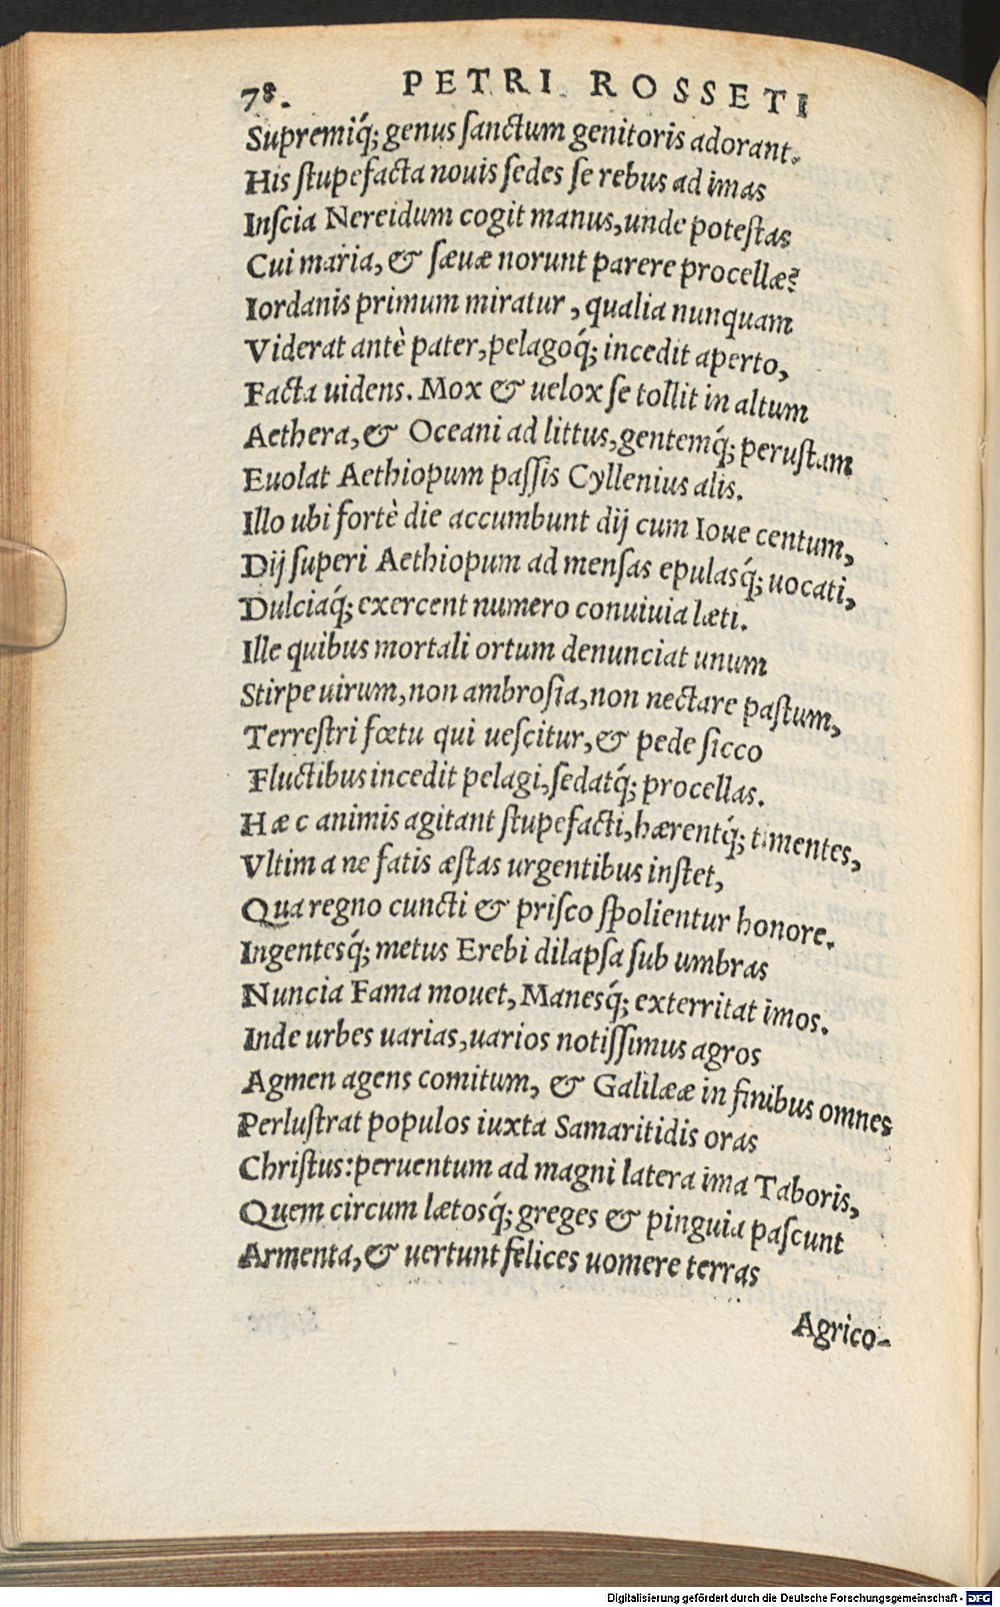 78. PETRI ROSSETI
Supremiq́; genus ſanctum genitoris adorant.
His ſtupefacta nouis ſedes ſe rebus ad imas
Inſcia Nereidum cogit manus, unde poteſtas
Cui maria, & ſæuæ norunt parere procellæ?
Iordanis primum miratur, qualia nunquam
Viderat antè pater, pelagoq́; incedit aperto,
Facta uidens. Mox & uelox ſe tollit in altum
Aethera, & Oceani ad littus, gentemq́; peruſtam
Euolat Aethiopum paſſis Cyllenius alis.
Illo ubi fortè die accumbunt dij cum Ioue centum,
Dij ſuperi Aethiopum ad menſas epulasq́; uocati,
Dulciaq́; exercent numero conuiuia læti.
Ille quibus mortali ortum denunciat unum
Stirpe uirum, non ambroſia, non nectare paſtum,
Terreſtri fœtu qui ueſcitur, & pede ſicco
Fluctibus incedit pelagi, ſedatq́; procellas.
Hæc animis agitant ſtupefacti, hærentq́; timentes,
Vltima ne fatis æſtas urgentibus inſtet,
Qua regno cuncti & priſco ſpolientur honore.
Ingentesq́; metus Erebi dilapſa ſub umbras
Nuncia Fama mouet, Manesq́; exterritat imos.
Inde urbes uarias, uarios notiſſimus agros
Agmen agens comitum, & Galilææ in finibus omnes
Perluſtrat populos iuxta Samaritidis oras
Chriſtus: peruentum ad magni latera ima Taboris,
Quem circum lætosq́; greges & pinguia paſcunt
Armenta, & uertunt felices uomere terras
Agrico-
Digitalisierung gefördert durch die Deutsche Forschungsgemeinschaft - DFG